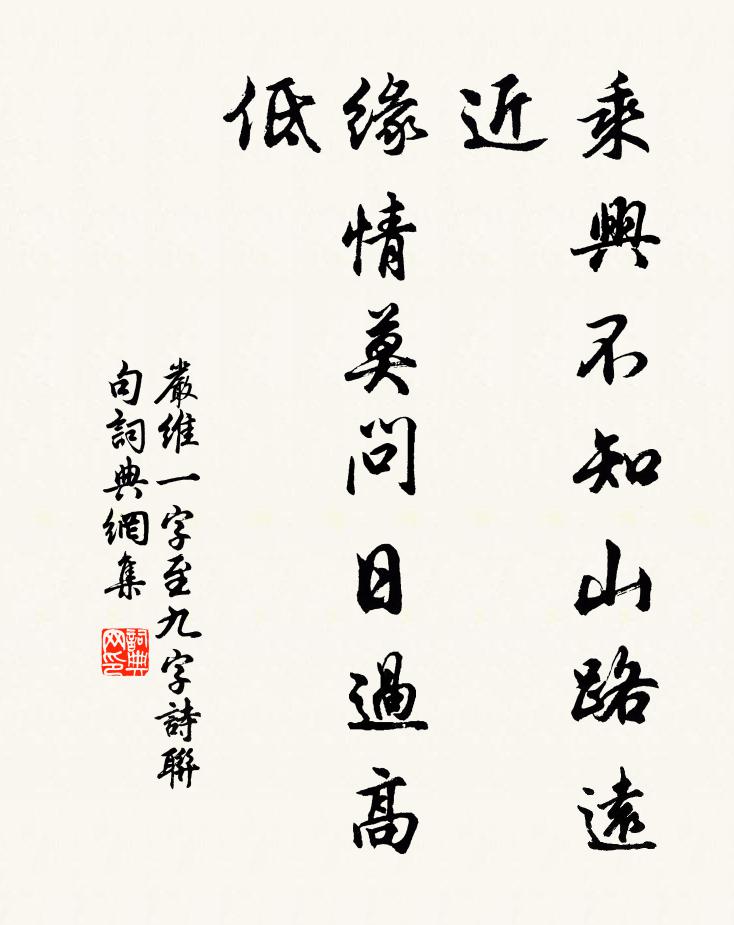 乘興不知山路遠
近
緣情莫問日過高
低
嚴維一字至九字詩聯
句詞典網集
詞典网印